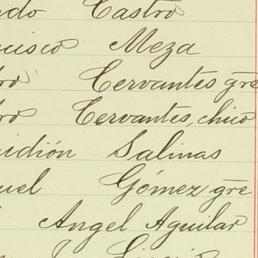 ndo Castro
cisco Meza
ro Cervantes gre
ro Cervantes, chico
idión Salinas
uel Gómez gre
Angel Aguilar